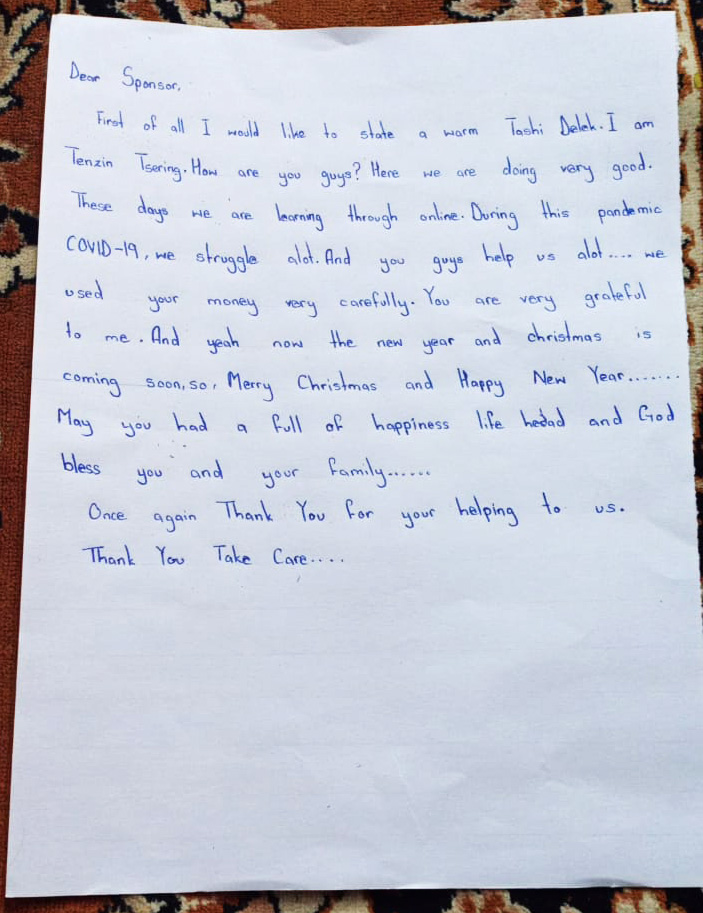 Dear Sponsor,
First of all I would like to state a warm Tashi Delek. I am
Tenzin Tsering. How are you guys? Here we are doing very good.
These days we are learning through online. During this pandemic
COVID-19, we struggle alot. And you guys help us alot.... we
used your money very carefully. You are very grateful
to me. And yeah now the new year and christmas is
coming soon, so, Merry Christmas and Happy New Year.......
May you had a full of happiness life hedad and God
bless you and your family......
Once again Thank You for your helping to us.
Thank You Take Care....